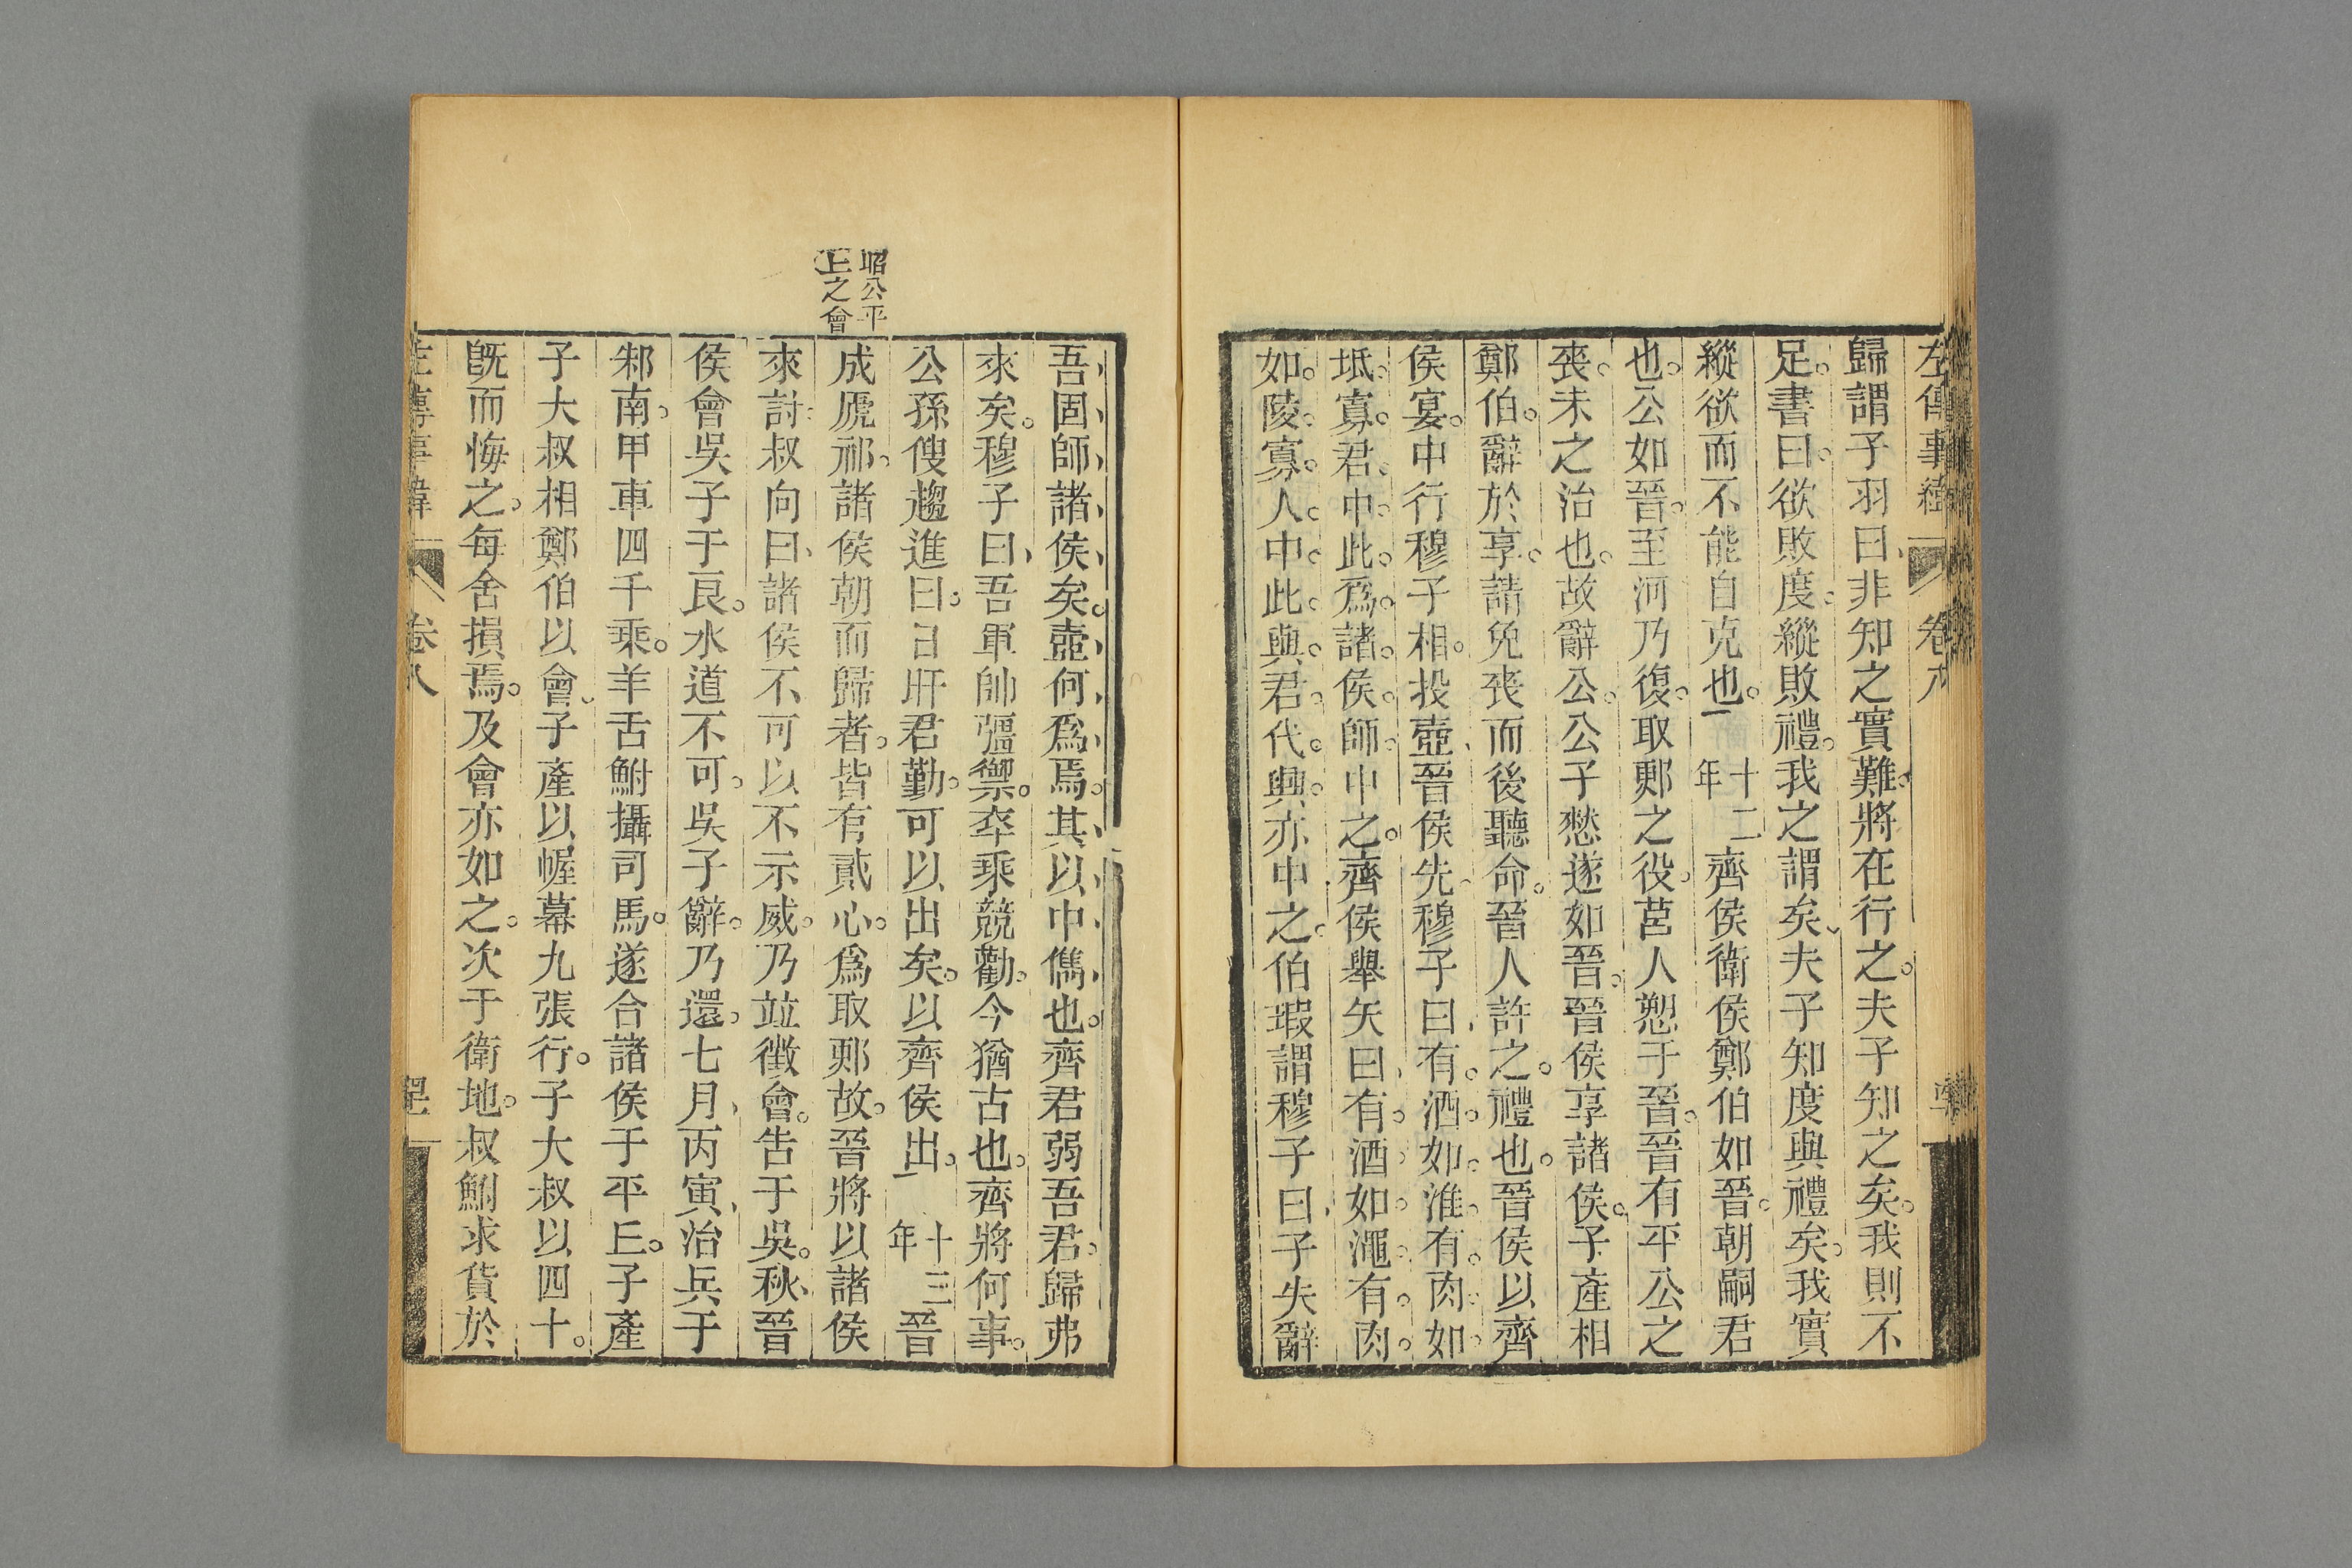 左傳事緯
卷八
歸謂子羽曰非知之實難將在行之夫子知之矣我則不
足書曰欲敗度縱敗禮我之謂矣夫子知度與禮矣我實
縱欲而不能自克也 十二年 齊侯衛侯鄭伯如晉朝嗣君
也公如晉至河乃復取郠之役莒人愬于晉晉有平公之
喪未之治也故辭公公子憖遂如晉晉侯享諸侯子產相
鄭伯辭於享請免喪而後聽命晉人許之禮也晉侯以齊
侯宴中行穆子相投壺晉侯先穆子曰有酒如淮有肉如
坻寡君中此爲諸侯師中之齊侯舉矢曰有酒如澠有肉
如陵寡人中此與君代興亦中之伯瑕謂穆子曰子失辭
吾固師諸侯矣壺何爲焉其以中儁也齊君弱吾君歸弗
來矣穆子曰吾軍帥彊禦卒乘競勸今猶古也齊將何事
公孫傁趨進曰日旰君勤可以出矣以齊侯出 十三年 晉
昭公平
丘之會
成虒祁諸侯朝而歸者皆有貳心爲取郠故晉將以諸侯
來討叔向曰諸侯不可以不示威乃竝徵會告于吳秋晉
侯會吳子于良水道不可吳子辭乃還七月丙寅治兵于
邾南甲車四千乘羊舌鮒攝司馬遂合諸侯于平丘子產
子大叔相鄭伯以會子產以幄幕九張行子大叔以四十
旣而悔之每舍損焉及會亦如之次于衛地叔鮒求貨於
左傳事緯
卷八